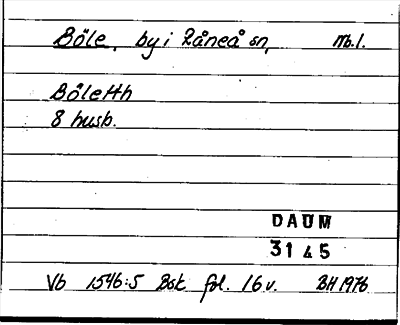 Böle, by i Råneå sn, Nb.l.
Böletth
8 husb.
DAUM
3145
Vb 1546:5 Bsk fol. 16v. BH 1976